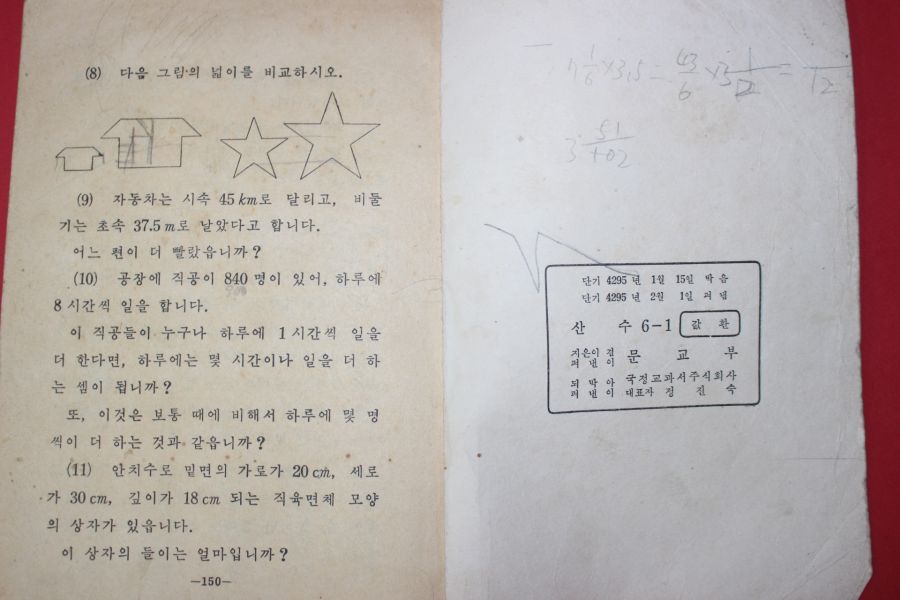 (8) 다음 그림의 넓이를 비교하시오.
(9) 자동차는 시속 45 km로 달리고, 비둘
기는 초속 37.5 m로 날았다고 합니다.
어느 편이 더 빨랐읍니까?
(10) 공장에 직공이 840 명이 있어, 하루에
8 시간씩 일을 합니다.
이 직공들이 누구나 하루에 1 시간씩 일을
더 한다면, 하루에는 몇 시간이나 일을 더 하
는 셈이 됩니까?
또, 이것은 보통 때에 비해서 하루에 몇 명
씩이 더 하는 것과 같읍니까?
(11) 안치수로 밑면의 가로가 20 cm, 세로
가 30 cm, 깊이가 18 cm 되는 직육면체 모양
의 상자가 있읍니다.
이 상자의 들이는 얼마입니까?
—150—
단기 4295 년 1월 15일 박음
단기 4295 년 2월 1일 펴냄
산 수 6-1
값 환
지은이 겸
펴낸이 문 교 부
되박아
펴낸이
국정교과서주식회사
대표자 정 진 숙